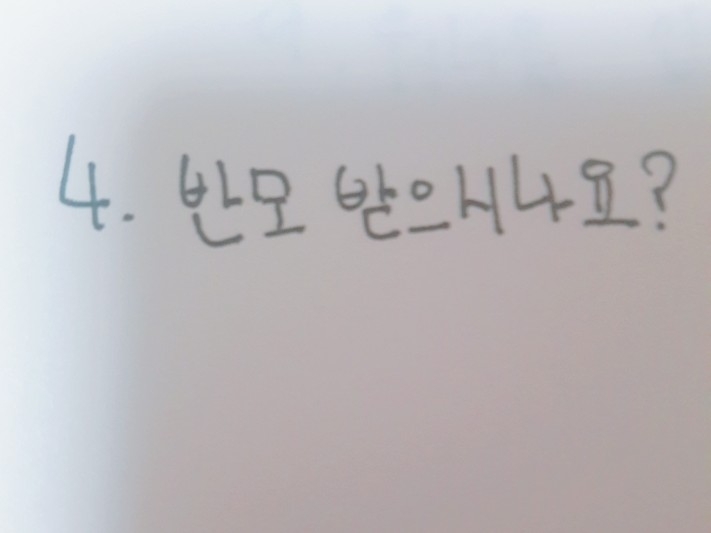 4. 반모 받으시나요?